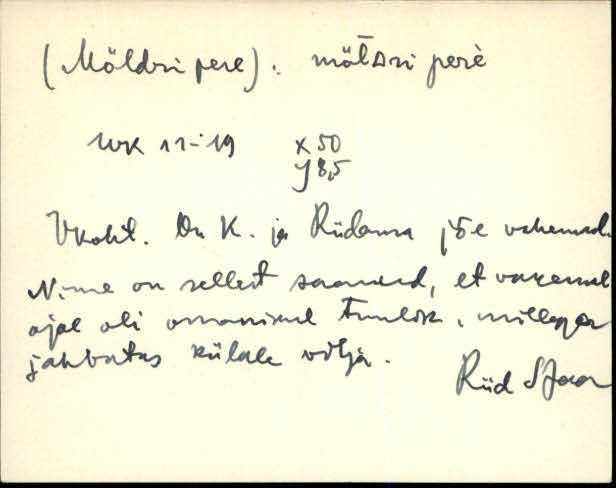 (Möldri pere). mölDri perè
WK 11-19 x 50
y 8,5
Vkoht. On K. ja Riidama jõe vahemaal.
Nime on sellest saanud, et varemal
ajal oli omanikul tuulik, millega
jahvatas külale vilja.
Riid